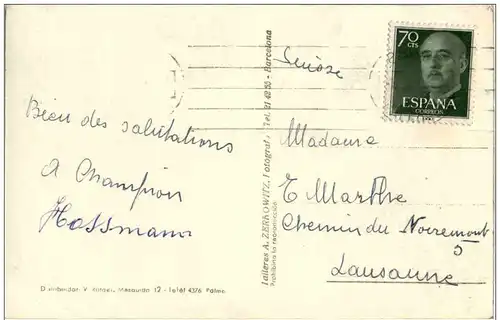 Bien des salutations
A Champion
Hossmann
Distribuidor: V. Mesquida 12 - Teléf 4376 Palma
Talleres A. ZERKOWITZ, Fotógrafo, Tel. 21 42 55 - Barcelona
Prohibida la reproducción
Suisse
70
CTS
ESPAÑA
CORREOS
Madame
E Marthe
Chemin du Noiremont
5
Lausanne